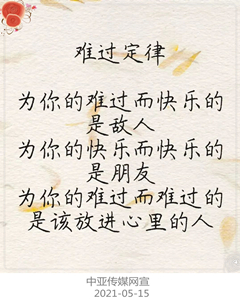 难过定律
为你的难过而快乐的
是敌人
为你的快乐而快乐的
是朋友
为你的难过而难过的
是该放进心里的人
中亚传媒网宣
2021-05-15